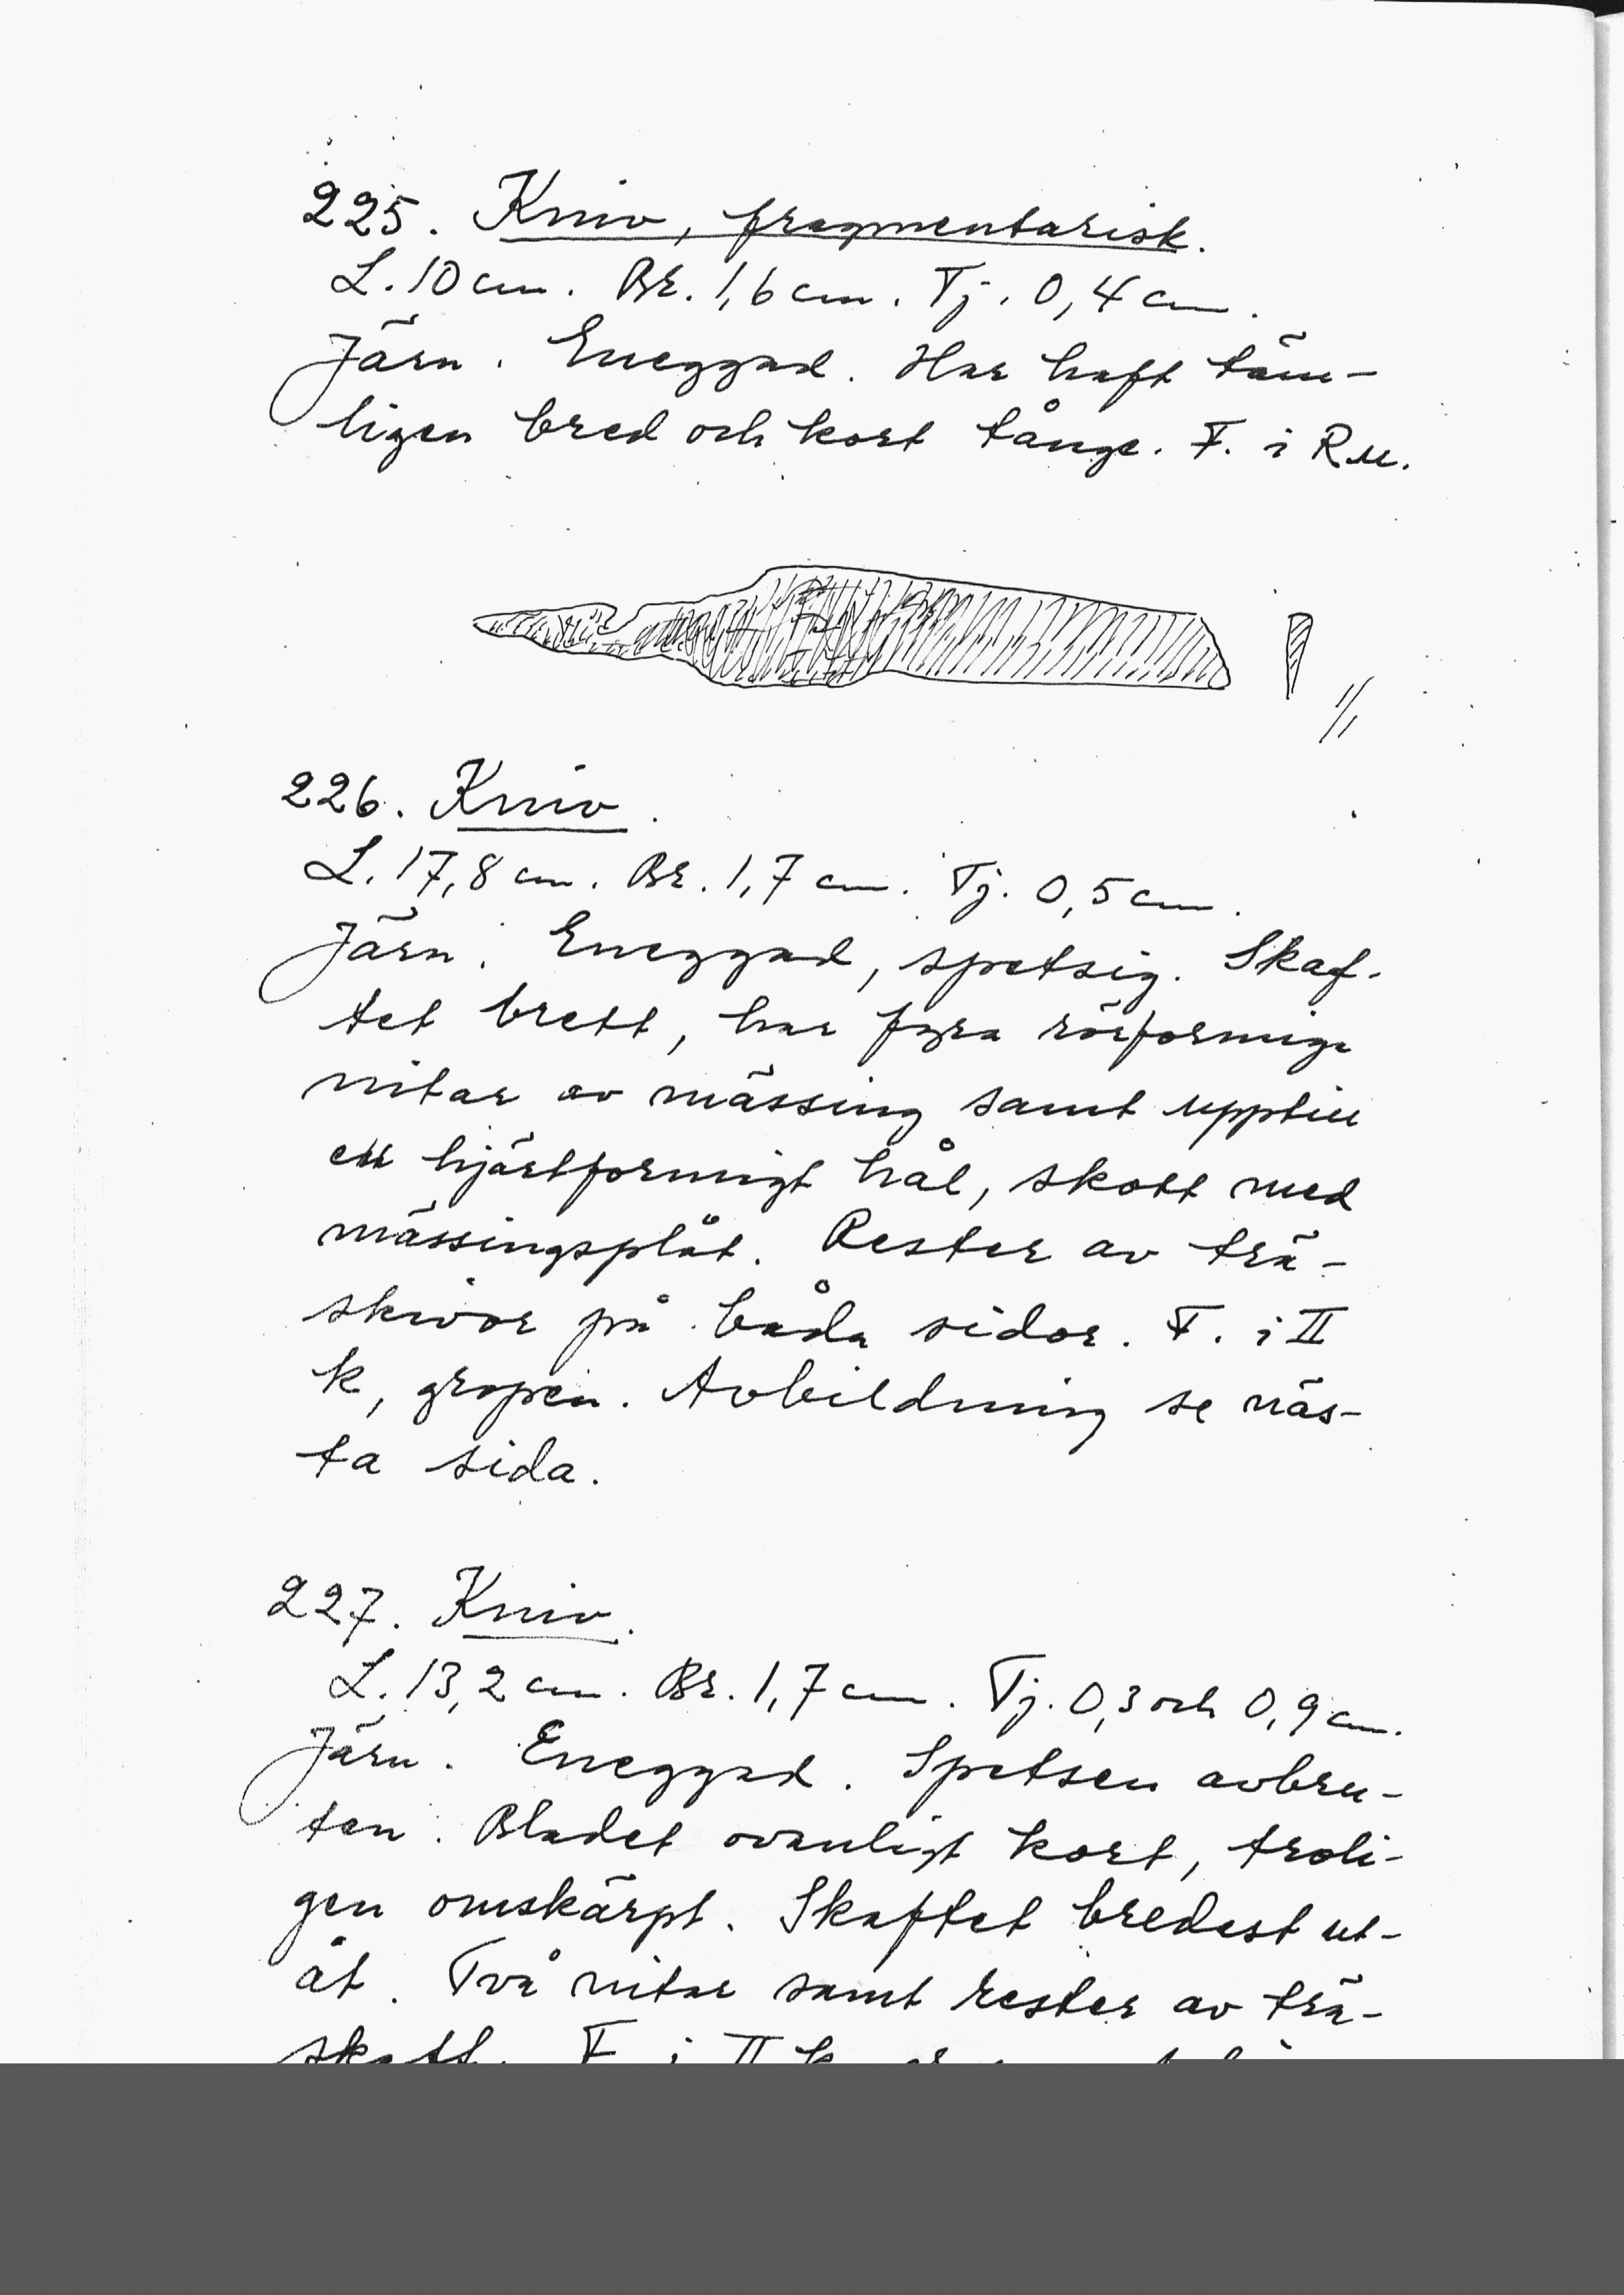 225. Kniv, fragmentarisk.
L. 10 cm. Br. 1,6 cm. Tj. 0,4 cm.
Järn. Eneggad. Har haft täm-
ligen bred och kort tånge. F. i RM.
1/1
226. Kniv.
L. 17,8 cm. Br. 1,7 cm. Tj. 0,5 cm.
Järn. Eneggad, spetsig. Skaf-
tet brett, har fyra rörformiga
nitar av mässing samt upptill
ett hjärtformigt hål, skott med
mässingsplåt. Rester av trä-
skivor på båda sidor. F. i II
k, gropen. Avbildning se näs-
ta sida.
227. Kniv.
L. 13,2 cm. Br. 1,7 cm. Tj. 0,3 och 0,9 cm.
Järn. Eneggad. Spetsen avbru-
ten. Bladet ovanligt kort, troli-
gen omskärpt. Skaftet bredest ut-
åt. Två nitar samt rester av trä-
F. i II k